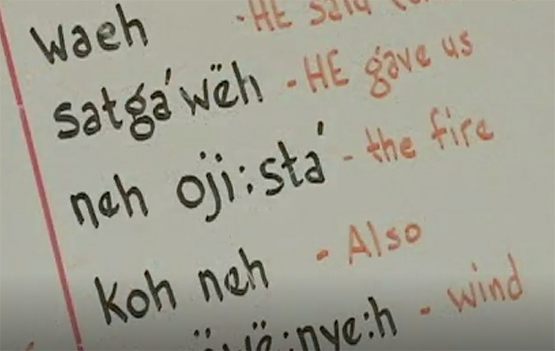 waeh - HE said
satga'wëh - HE gave us
neh oji:sta' - the fire
koh neh - Also
:nye:h - wind